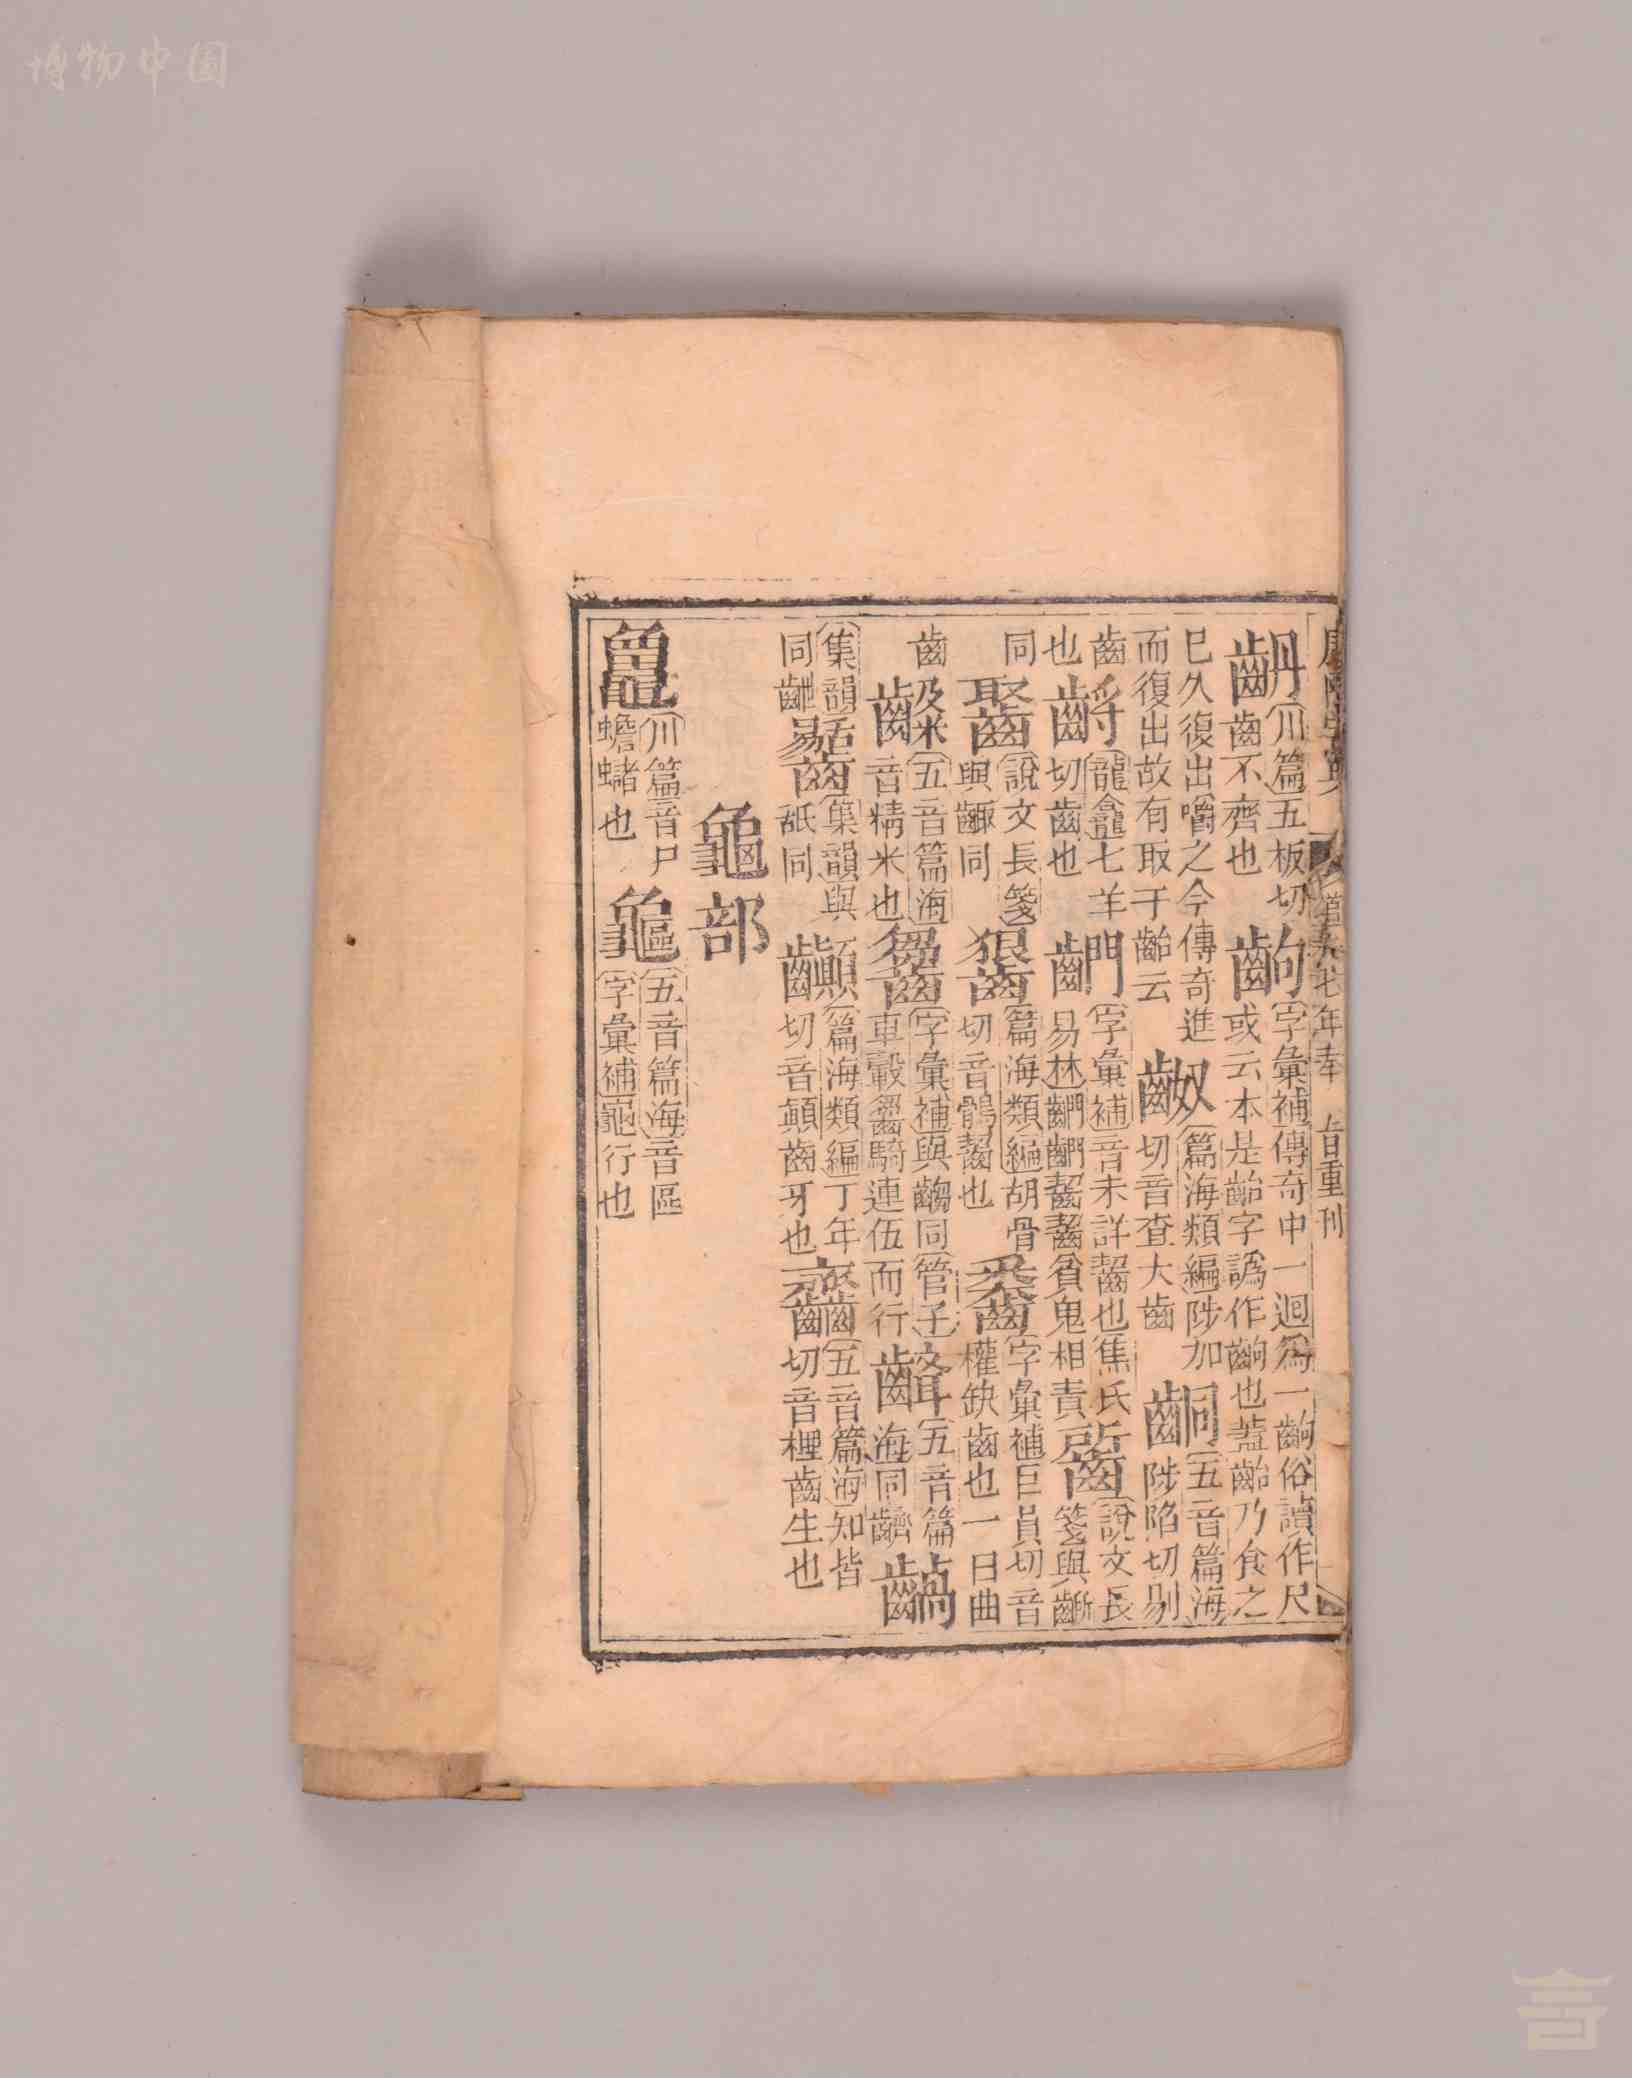 博物中國
康熙字典
道光七年奉 旨重刊
〔川篇〕五板切
齒不齊也
〔字彙補〕傳奇中一迴爲一齣俗讀作尺
或云本是齝字譌作齣也蓋齝乃食之
已久復出嚼之今傳奇進
而復出故有取于齝云
〔篇海類編〕陟加
切音查大齒
〔五音篇海〕
陟陷切剔
齒
也
〔龍龕〕七羊
切齒也
〔字彙補〕音未詳齧也〔焦氏
易林〕齧齧貧鬼相責
〔說文長
箋〕與齗
同
〔說文長箋〕
與齱同
〔篇海類編〕胡骨
切音鶻齧也
〔字彙補〕巨員切音
權缺齒也一曰曲
齒
〔五音篇海〕
音精米也
〔字彙補〕與齺同〔管子〕
車轂騎連伍而行
〔五音篇
海〕同齾
〔集韻〕
同齜
〔集韻〕與
舐同
齻
〔篇海類編〕丁年
切音顛齒牙也
〔五音篇海〕知皆
切音樦齒生也
龜部
〔川篇〕音尸
蟾蠩也
〔五音篇海〕音區
〔字彙補〕龜行也